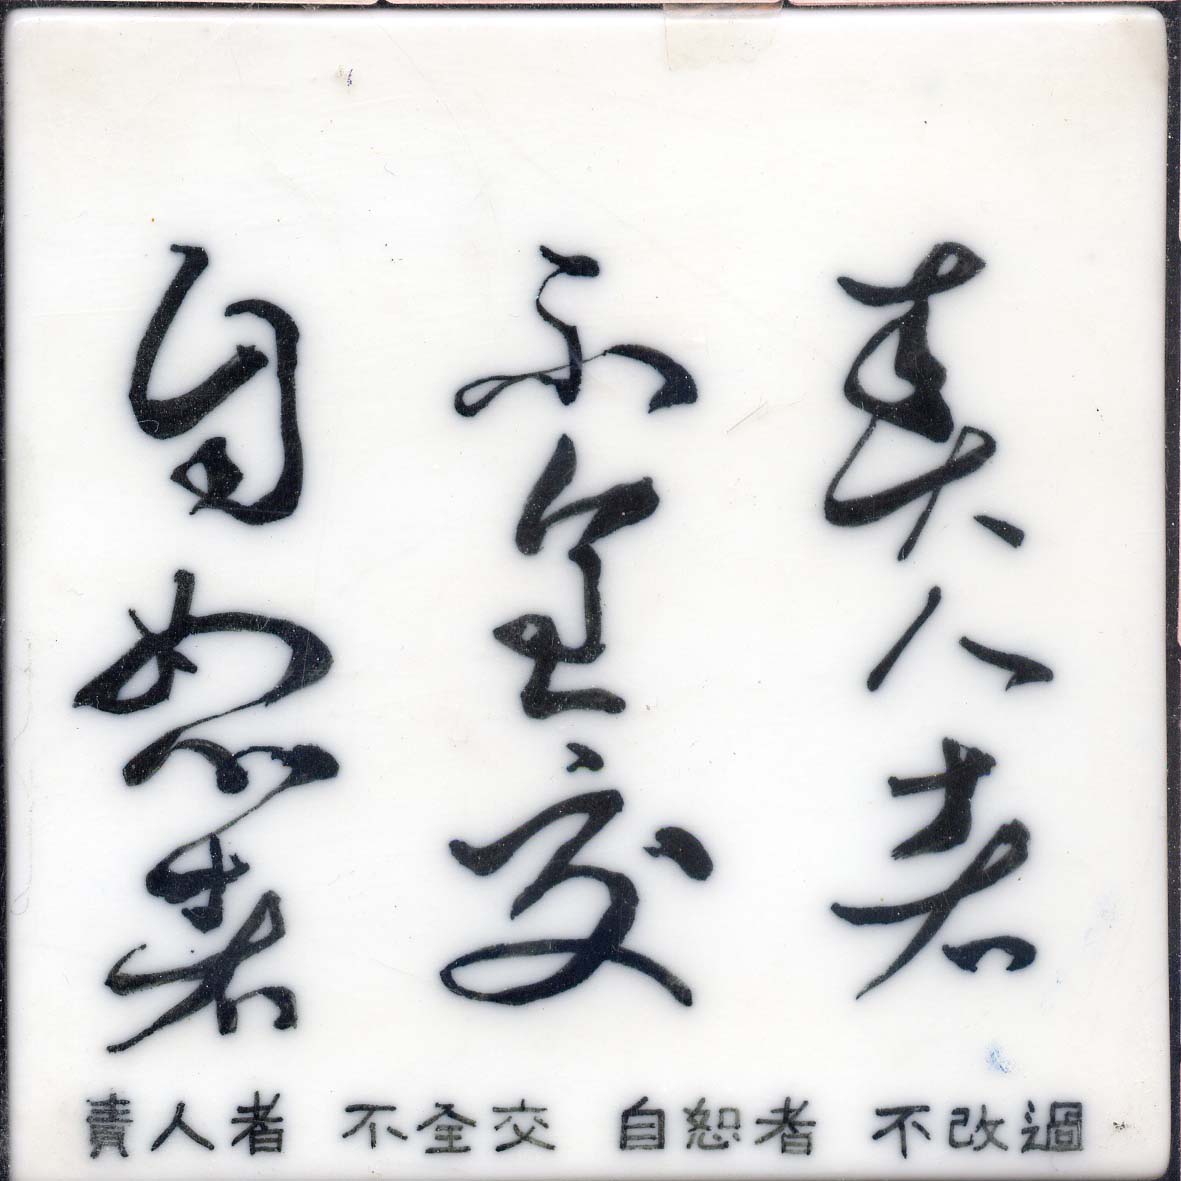 責人者
不全交
自恕者
責人者 不全交 自恕者 不改過